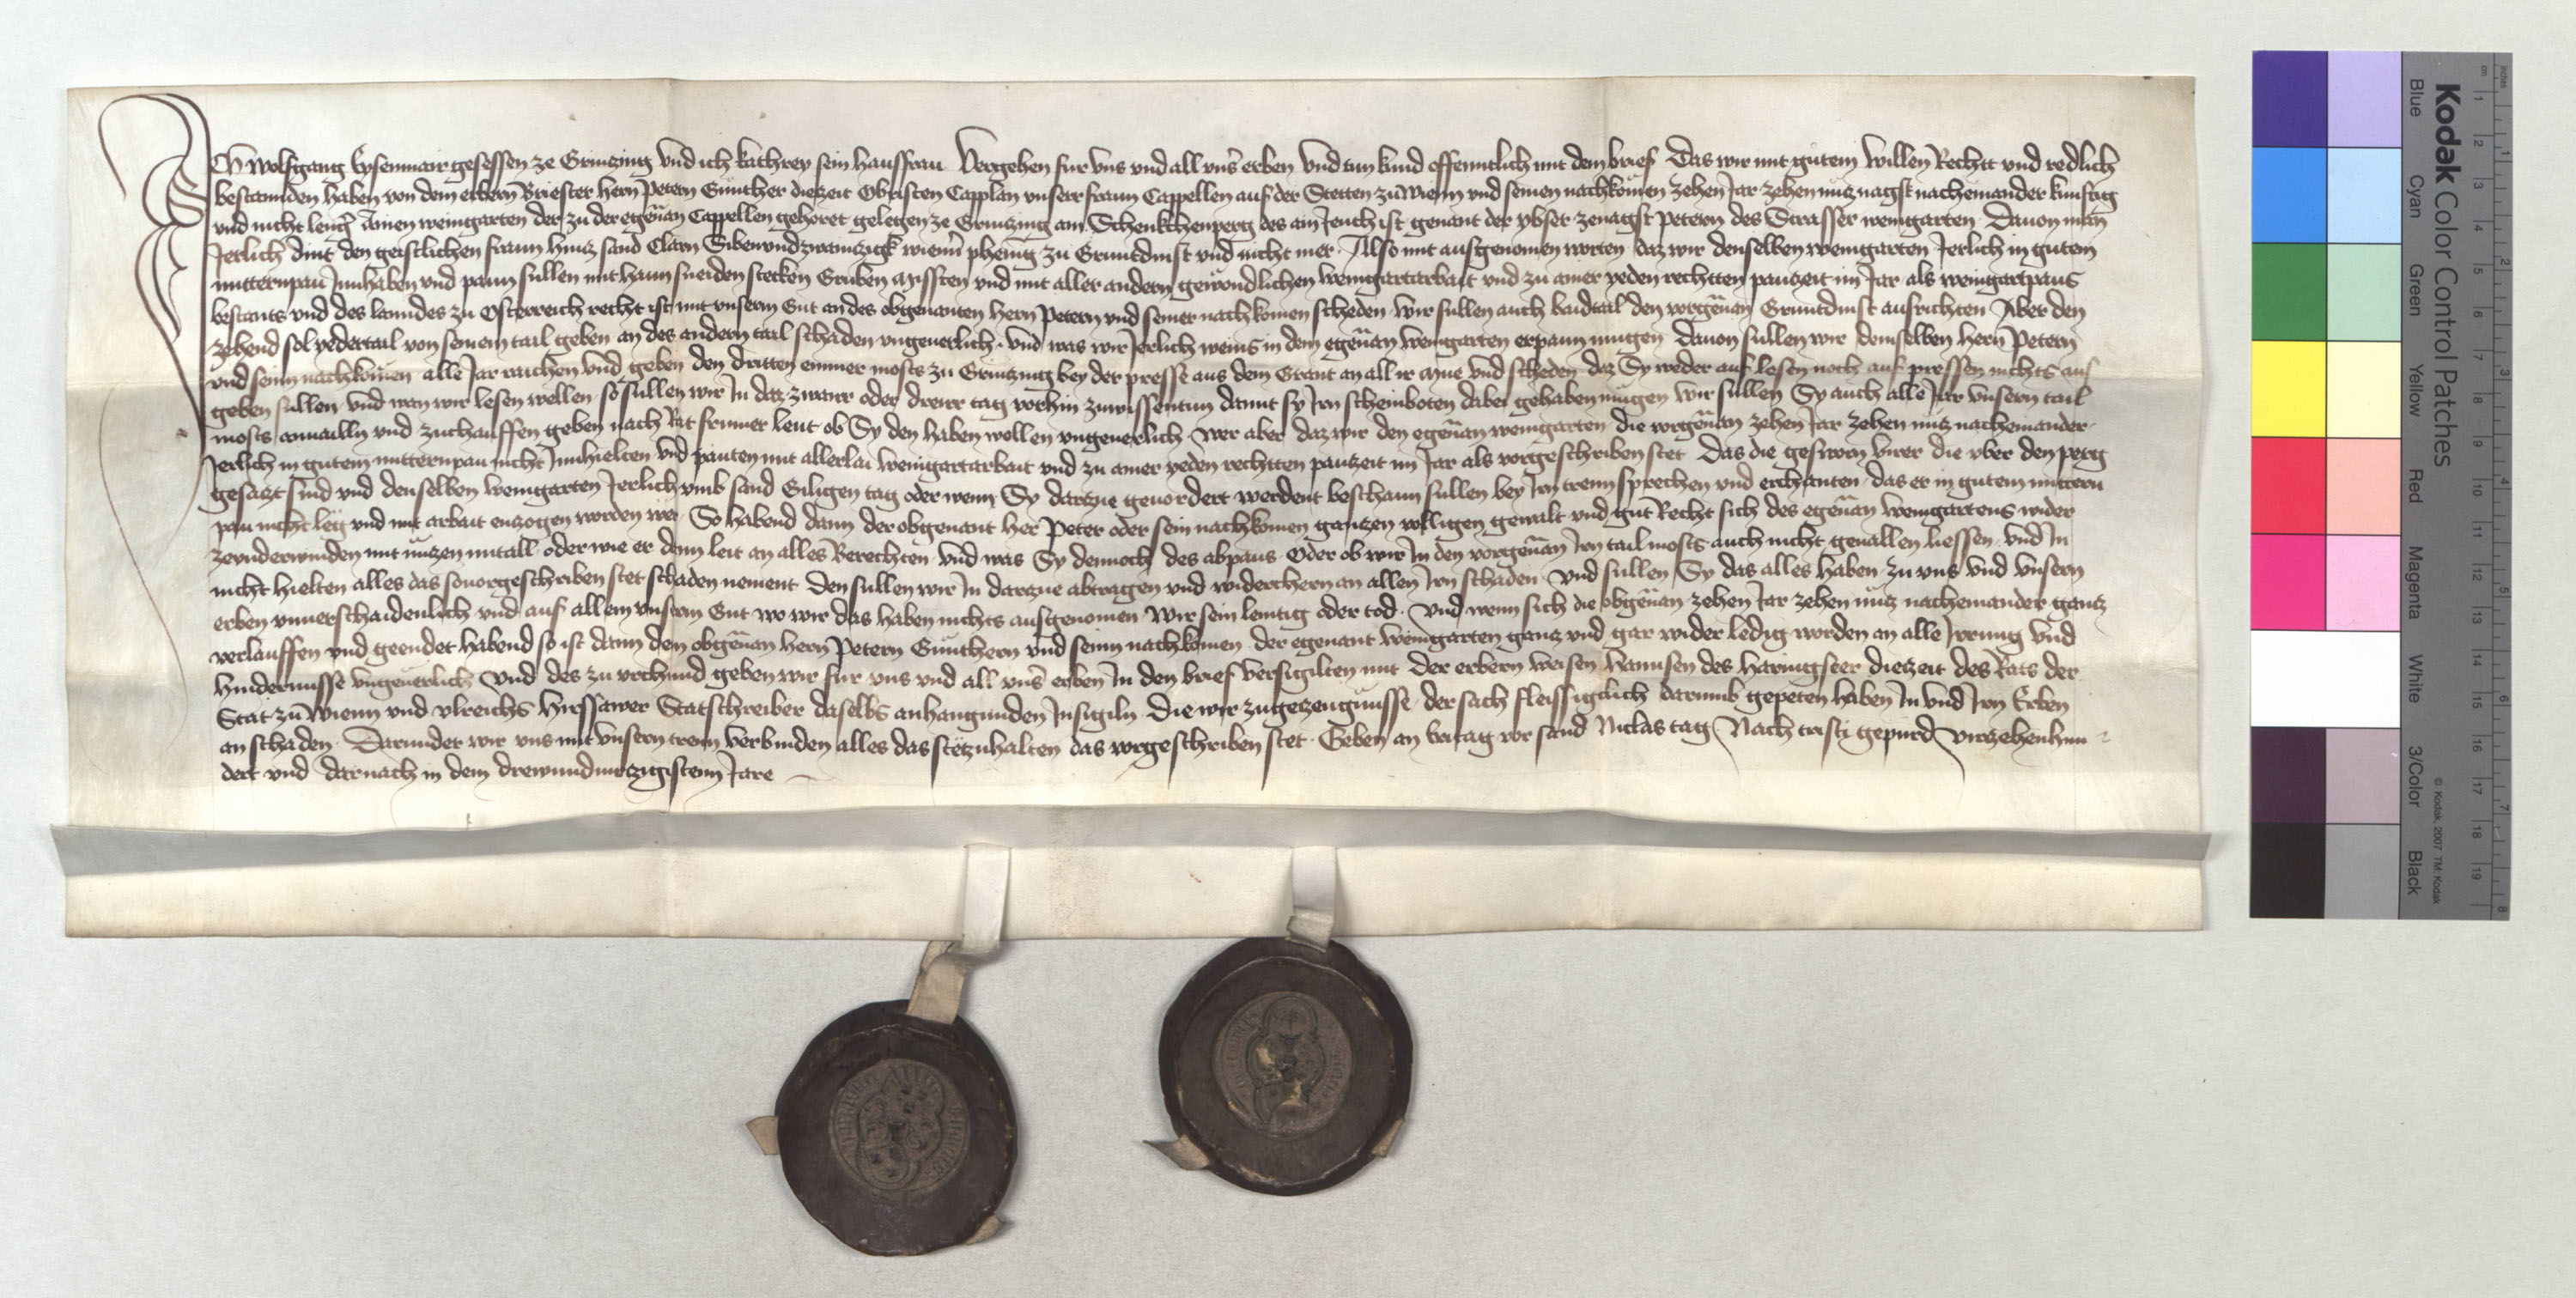 Ich Wolfgang Eysenmair gesessen ze Grinzing und ich kathrey sein hausfrau Vergehen fur uns und all unser erben Und tun kund offenntlich mit dem brief Das wir mit gutem Willen Rechtt und redlich
bestannden haben von dem erbern Briester hern Petern Gunther diezeit Obristen Capplan unserr fraun Cappellen auf der Stetten zu Wienn und seinen nachkomen zehen Jar zehen nucz nagst nacheinander kunftig
und nicht lenger Ainen weingarten der zu der egenan Cappellen gehoret gelegen ze Grinzing am Schenkchenperg des ain Jeuch ist genant der ybser zenagst Petern des Strasser weingarten Dauon man
Jerlich dint den geistlichen fraun hincz sand Clarn Sibenundzwainczigk wienner phenig zu Gruntdinst und nicht mer Also mit ausgenomen worten daz wir denselben weingarten Jerlich in gutem
mitterrnpau Innhaben und paun sullen mit haun sneiden stecken Gruben Missten und mit aller andern gewondlichen weingartarbait und zu ainer yeden rechtten pauzeit im Jar als weingartpaus
bestants und des lanndes zu Osterreich recht ist mit unserm Gut an des obgenanten hern Petern und seiner nachkomen scheden Wir sullen auch baidtail den vorgenan Gruntdinst ausrichten Aber den
zehend sol yedertail von seinem tail geben an des andern tail schaden ungeuerlich Und was wir Jerlich weins in dem egenan weingarten erpaun mugen dauon sullen wir demselben hern Petern
und seinn nachkomen alle Jar raichen Und geben den dritten emmer mosts zu Grinzing bey der presse aus dem Grant an all ir Mue und scheden daz Sy weder auf lesen noch auf pressen nichts aus
geben sullen und wan wir lesen wellen so sullen wir In daz zwair oder dreir tag vorhin zuwissentun damit sy Irn scheinboten dabei gehaben mugen Wir sullen Sy auch alle Jar unsern tail
mosts anuailln und zuchauffen geben nach Rat frumer leut ob Sy den haben wollen ungeuerlich Wer aber daz wir den egenan weingarten die vorgenan zehen Jar zehen nucz nacheinander
Jerlich in gutem mitterrnpau nicht Innhielten Und pauten mit allerlai weingartarbait und zu ainer yeden rechtten pauzeit im Jar als vorgeschriben stet Das die gesworn virer die uber den perg
gesaczt sind und denselben weingarten Jerlich umb sand Giligen tag oder wenn Sy darczue geuordert werdent beschaun sullen bey Irn treun sprechen und erchanten das er in gutem mitterm
pau nicht leg und mit arbait enczogen worden wer So habend dann der obgenant her Peter oder sein nachkomen ganczen volligen gewalt und gut Recht sich des egenan weingartens wider
zeunderwinden mit nuczen mitall oder wie er dann leit an alles Berechten Und was Sy dennoch des abpaus Oder ob wir In den vorgenan Irn tail mosts auch nicht geuallen liessen und In
nicht hielten alles das souorgeschriben stet schaden nement Den sullen wir In darczue abtragen und widerchern an allen Irn schaden Und sullen Sy das alles haben zu uns Und Unsern
erben unuerschaidenlich und auf allem unserm Gut wo wir das haben nichts ausgenomen Wir sein lemtig oder tod Und wenn sich die obgenan zehen Jar zehen nucz nacheinander gancz
verlauffen und geendet habend so ist dann den obgenan hern Petern Gunthern und seinn nachkomen der egenant Weingarten gancz und gar wider ledig worden an alle Irrung Und
hindernusse ungeuerlich Und des zu urchund geben wir fur uns und all unser erben In den brief versigilten mit der erbern weisen Hannsen des Haringseer diezeit des Rats der
Stat zu Wienn und ulreichs Hirssawer Statschreiber daselbs anhangunden Insigiln Die wir zugeczeugnusse der sach fleissiglich darumb gepeten haben In und Irn Erben
an schaden Darunder wir uns mit unsern treun verbinden alles das stetzuhalten das vorgeschriben stet Geben an Freitag vor sand Niclas tag Nach cristi gepurd vierczehenhun
dert und darnach in dem dreundvierczigistem Jare
Kodak Color Control Patches
Blue Cyan Green Yellow Red Magenta White 3/Color Black
© Kodak, 2007 TM: Kodak
cm 1 2 3 4 5 6 7 8 9 10 11 12 13 14 15 16 17 18 19
inches 1 2 3 4 5 6 7 8